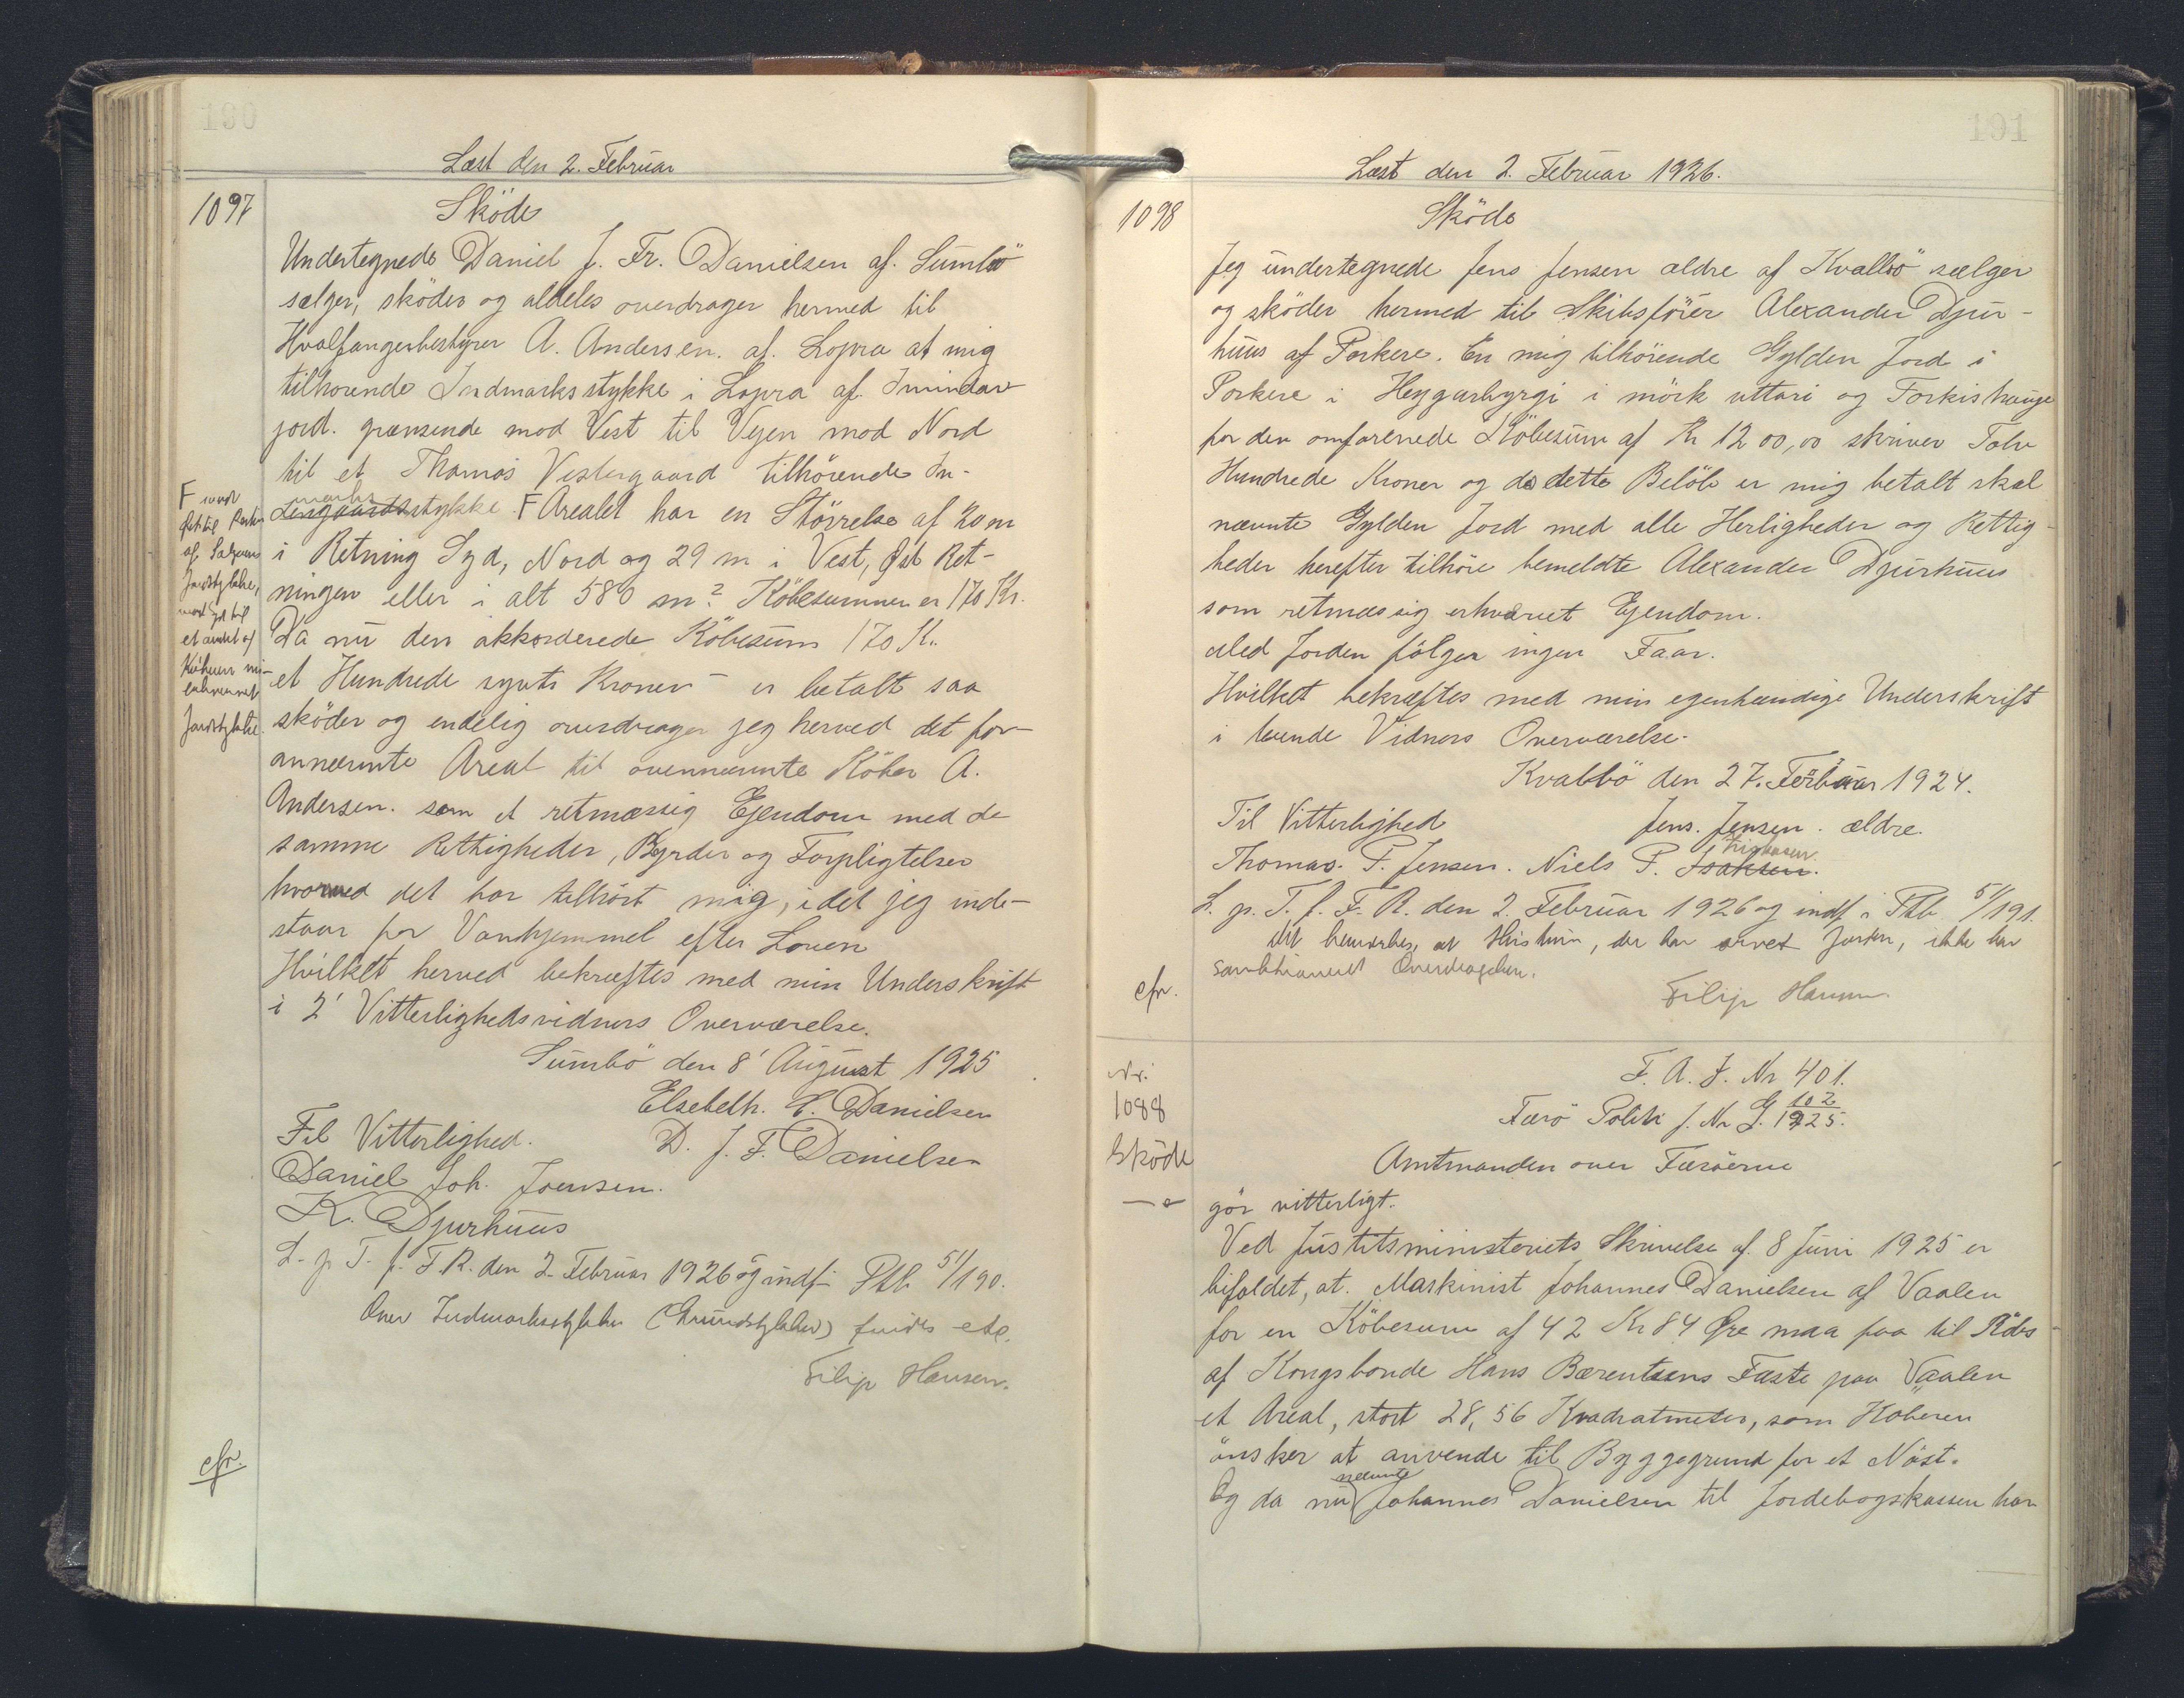 190
Læst den 2. Februar
1097
Sköde
Undertegnede Daniel J. Fr. Danielsen af. Sumbö
sælger, sköder og aldeles overdrager hermed til
Hvalfangerbestyrer A. Andersen. af. Lopra at mig
tilhorende Indmarksstykke i Lopra af.
jord. grænsende mod Vest til Vejen mod Nord
til et Thomas Vestergaard tilhörende In-
marks
stykke. F Arealet har en Störrelse af 20 m
i Retning Syd, Nord og 29 m i Vest, Øst Ret-
ningen eller i alt 580 m² Köbesummen er 170 Kr.
Da nu den akkorderede Köbesum 170 K.
et Hundrede synti Kroner - er betalt saa
sköder og endelig overdrager jeg herved det for-
annævnte Areal til ovennævnte Köber A.
Andersen. som et retmæssig Ejendom med de
samme Rettigheder, Byrder og Forpligtelser
hvormed det har tilhört mig, idet jeg inde-
staar for Vanhjemmel efter Loven
Hvilket herved bekræftes med min Underskrift
i 2' Vitterlighedsvidners Overværelse.
Sumbö den 8' August 1925
Elsebeth. E. Danielsen
Til Vitterlighed.
D. J. F. Danielsen
Daniel Joh. Joensen.
K. Djurhuus
L. p T. f. F.R. den 2. Februar 1926 og indf i Ptb. 51/190.
Over Indmarksstykket (Grundstykket) findes
Filip Hansen.
cfr.
F mod
Øst til Resten
af Sælgerens
Jordstykke,
mod Syd til
et andet af
Köberen
Jordstykke.
191
Læst den 2. Februar 1926.
1098
Sköde
Jeg undertegnede Jens Jensen ældre af Kvalbö sælger
og sköder hermed til Skibsförer Alexander Djur-
huus af Porkere. En mig tilhörende Gylden Jord i
Porkere i Heygarbyrgi i mörk uttari og Torkishauge
for den omforenede Köbesum af Kr 1200,00 skriver Tolv
Hundrede Kroner og da dette Belöb er mig betalt skal
nævnte Gylden Jord med alle Herligheder og Rettig-
heder herefter tilhöre bemeldte Alexander Djurhuus
som retmæssig erhvervet Ejendom.
Med Jorden fölger ingen Faar.
Hvilket bekræftes med min egenhændige Underskrift
i tvende Vidners Overværelse.
Kvalbö den 27. Februar 1924.
Til Vitterlighed
Jens. Jensen. ældre.
Thomas. P. Jensen. Niels P. Isaksen.
L. p. T. f. F. R. den 2. Februar 1926 og indf i Ptb. 51/191.
Det bemærkes, at Hustruen, der har arvet Jorden, ikke har
sanktioneret Overdragelsen.
Filip Hansen
cfr.
Nr.
1088
Sköde
F. A. J. Nr 401.
Færö Politi J. Nr G. 102/1925.
Amtmanden over Færöerne
gör vitterligt.
Ved Justitsministeriets Skrivelse af 8 Juni 1925 er
bifaldet, at. Maskinist Johannes Danielsen af Vaalen
for en Köbesum af 42 Kr 84 Øre maa faa til Köbs
af Kongsbonde Hans Bærentsens Fæste paa Vaalen
et Areal, stort 28,56 Kvadratmeter, som Köberen
önsker at anvende til Byggegrund for et Nöst.
Og da nu nævnte Johannes Danielsen til Jordebogskassen har